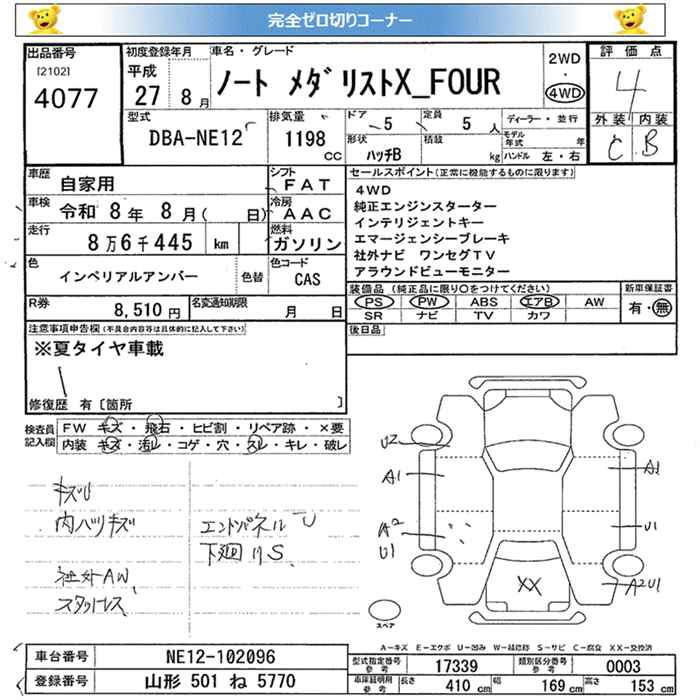 完全ゼロ切りコーナー
出品番号 初度登録年月 車名・グレード 評価点
[2102] 平成 ノート メダリストX_FOUR 2WD
4077 27 8月 ・ 4WD 4
型式 排気量 ドア 5 定員 5 人 ディーラー・並行 外装 内装
DBA-NE12 1198 CC 形状 ハッチB 積載 kg モデル年式 年 C B
ハンドル 左・右
車歴 自家用 シフト FAT セールスポイント(正常に機能するものに限ります)
車検 令和 8年 8月( 日) 冷房 AAC 4WD
純正エンジンスターター
走行 8万6千445 km 燃料 ガソリン インテリジェントキー
エマージェンシーブレーキ
色 インペリアルアンバー 色替 色コード CAS 社外ナビ ワンセグTV
アラウンドビューモニター
R券 8,510円 名変通知期限 月 日 装備品(純正品に限り○をつけてください) 新車保証書
PS PW ABS エアB AW 有・無
SR ナビ TV カワ
注意事項申告欄(不具合内容等は具体的に記入して下さい) 後日品
※夏タイヤ車載
修復歴 有〔箇所 〕
検査員記入欄 FW キズ・飛石・ヒビ割・リペア跡・×要
内装 キズ・汚レ・コゲ・穴・スレ・キレ・破レ
キズU
内ハツキズ エンドパネルU
下廻りS
社外AW
スタッドレス
U2
A1 A1
A2 U1
U1
XX A2U1
スペア
A-キズ E-エクボ U-凹み W-補修跡 S-サビ C-腐食 XX-交換済
車台番号 NE12-102096 型式指定番号 参考 17339 類別区分番号 参考 0003
登録番号 山形 501 ね 5770 車庫証明用 参考 長さ 410 cm 幅 169 cm 高さ 153 cm